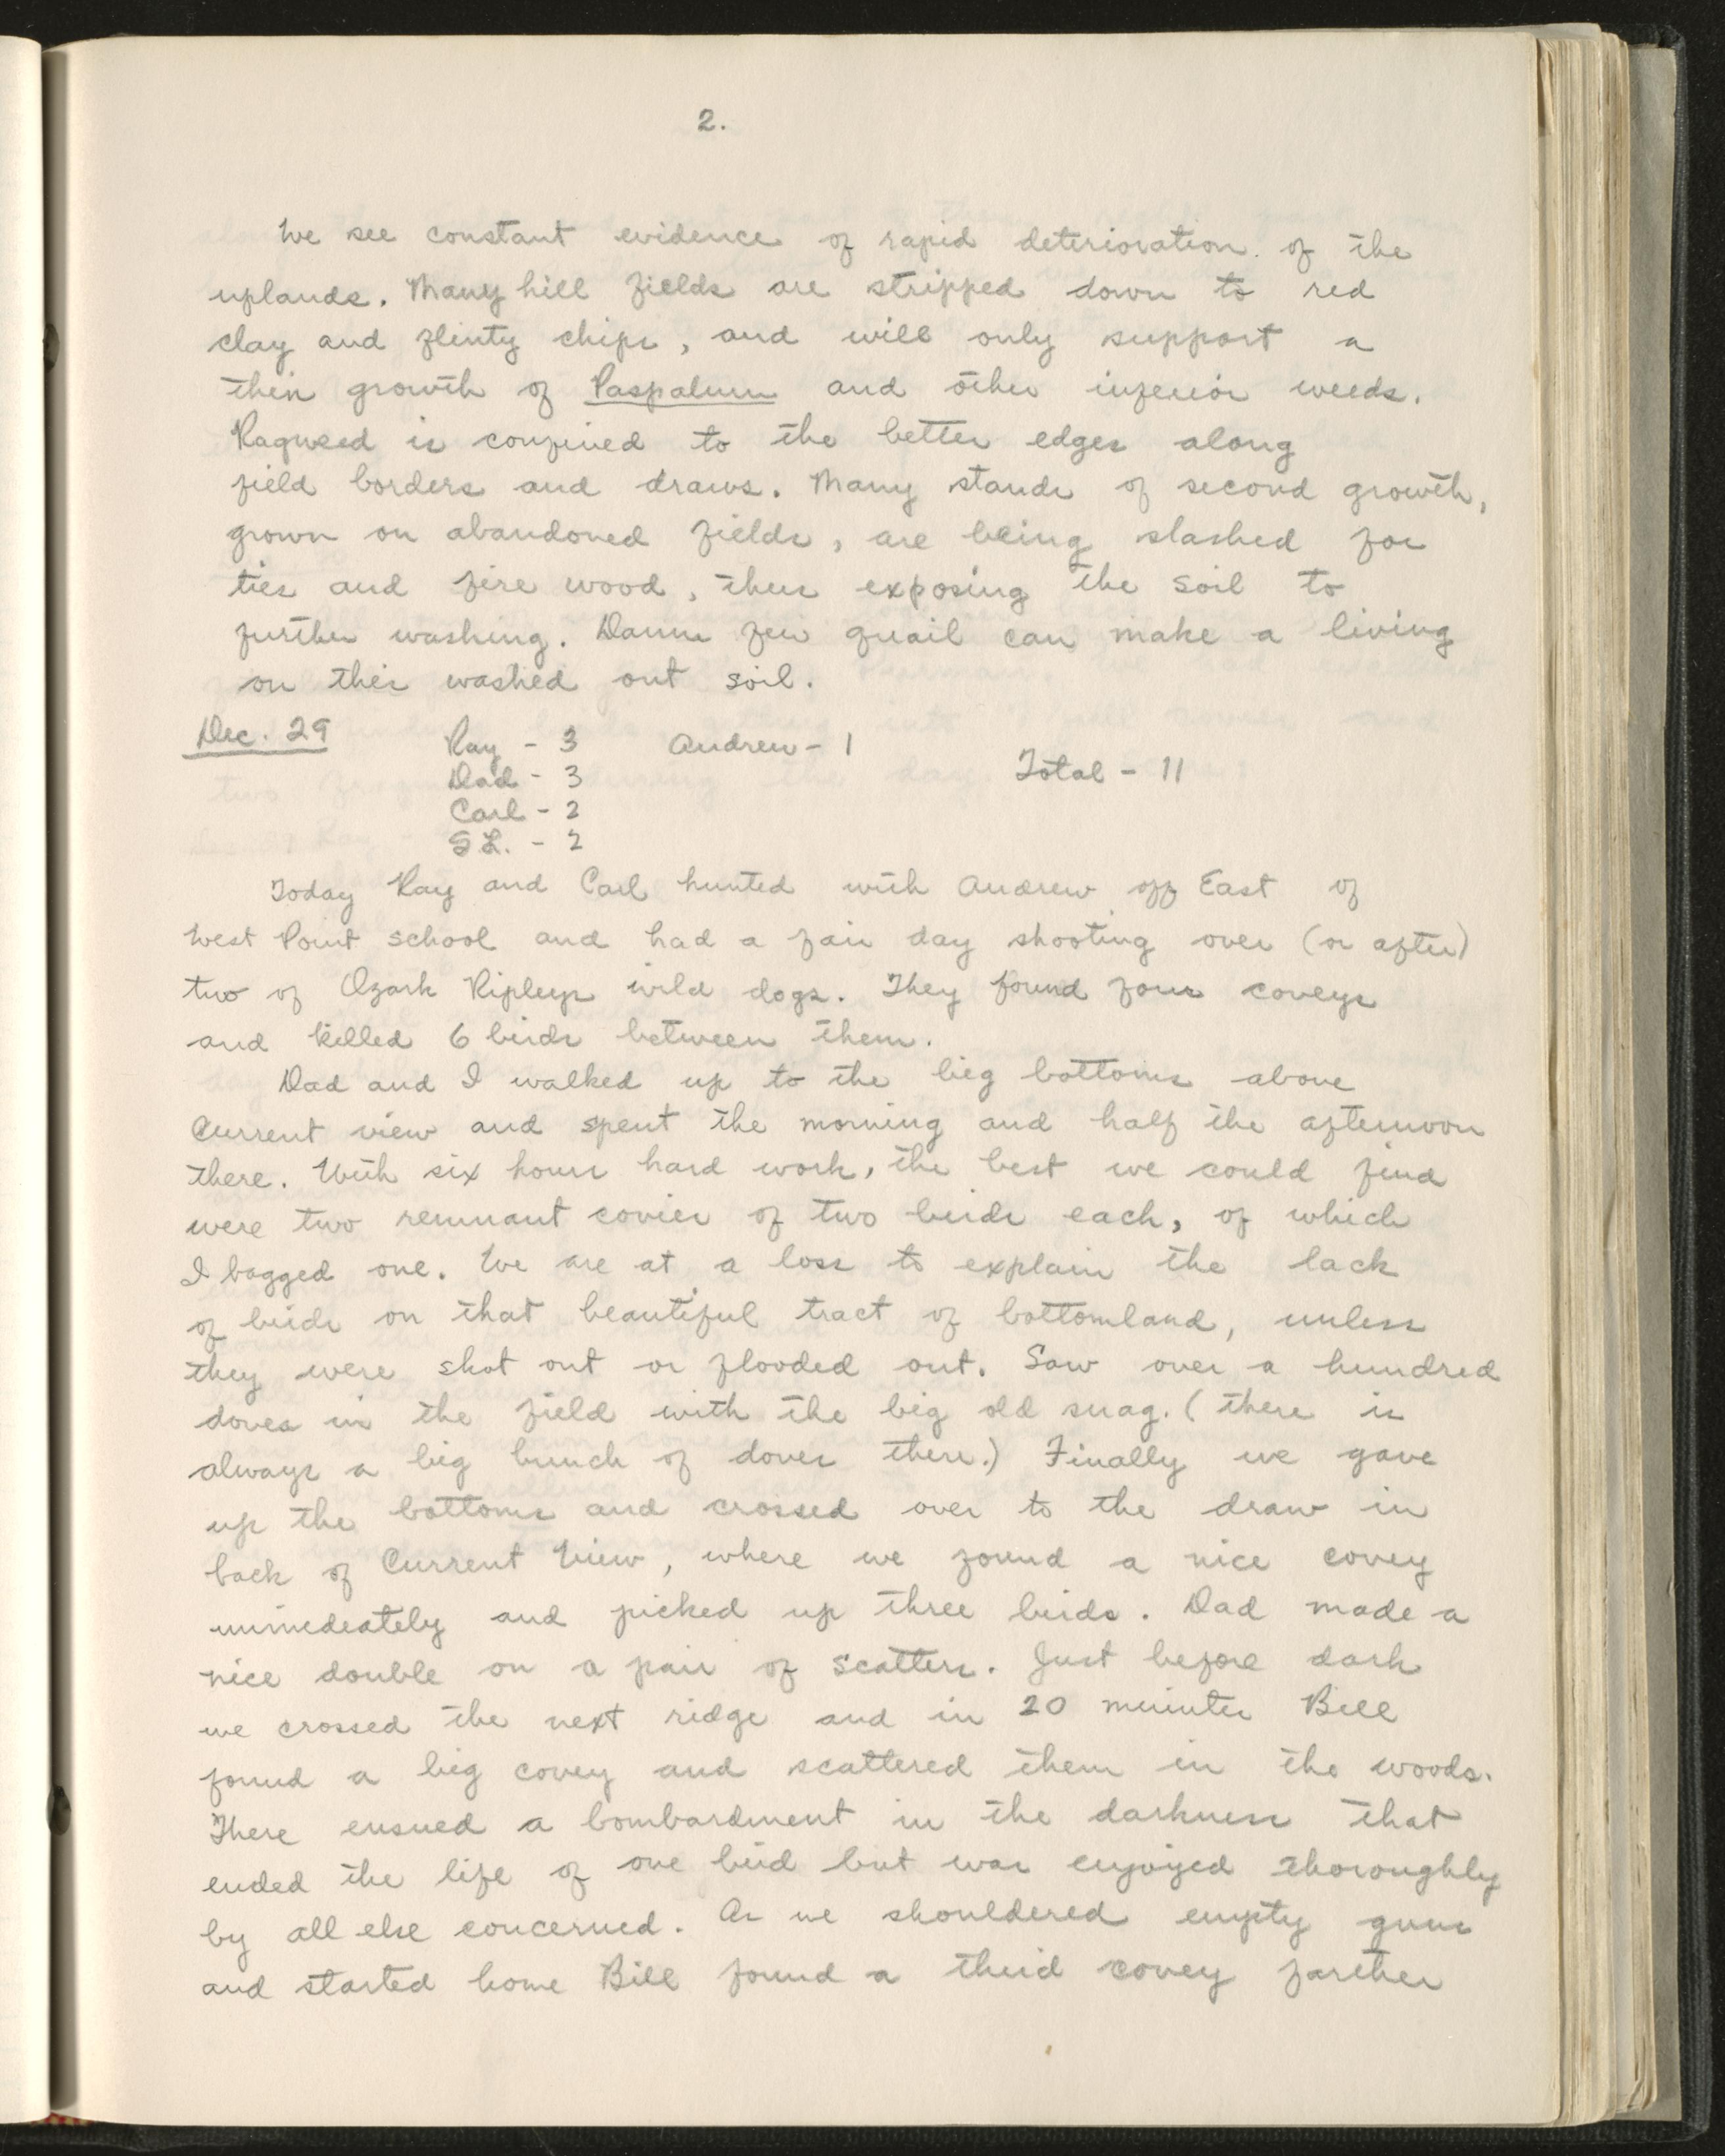 2.
We see constant evidence of rapid deterioration of the
uplands. Many hill fields are stripped down to red
clay and flinty chips, and will only support a
thin growth of Paspalum and other inferior weeds.
Ragweed is confined to the better edges along
field borders and draws. Many stands of second growth,
grown on abandoned fields, are being slashed for
ties and fire wood, thus exposing the soil to
further washing. Damn few quail can make a living
on this washed out soil.
Dec. 29 Ray - 3 Andrew - 1
Dad - 3 Total - 11
Carl - 2
S.L. - 2
Today Ray and Carl hunted with Andrew off East of
West Point school and had a fair day shooting over (or after)
two of Ozark Ripleys wild dogs. They found four coveys
and killed 6 birds between them.
Dad and I walked up to the big bottoms above
Current view and spent the morning and half the afternoon
there. With six hours hard work, the best we could find
were two remnant covies of two birds each, of which
I bagged one. We are at a loss to explain the lack
of birds on that beautiful tract of bottomland, unless
they were shot out or flooded out. Saw over a hundred
doves in the field with the big old snag. (there is
always a big bunch of doves there.) Finally we gave
up the bottoms and crossed over to the draw in
back of Current View, where we found a nice covey
immediately and picked up three birds. Dad made a
nice double on a pair of scatters. Just before dark
we crossed the next ridge and in 20 minutes Bill
found a big covey and scattered them in the woods.
There ensued a bombardment in the darkness that
ended the life of one bird but was enjoyed thoroughly
by all else concerned. As we shouldered empty guns
and started home Bill found a third covey farther